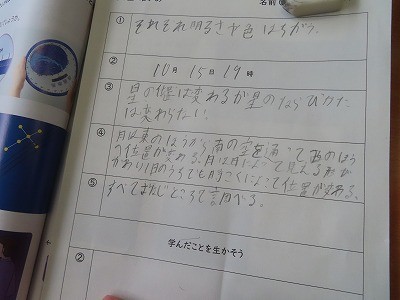 名前
①
それぞれ明るさや色はちがう。
②
10月 15日 19時
③
星の位置は変わるが星のならびかた
は変わらない。
④
月は東のほうから南の空を通って西のほう
へ位置が変わる。月は日によって見える形が
かわり1日のうちでも時こくによって位置が変わる。
⑤
すべておなじところで調べる。
学んだことを生かそう
②